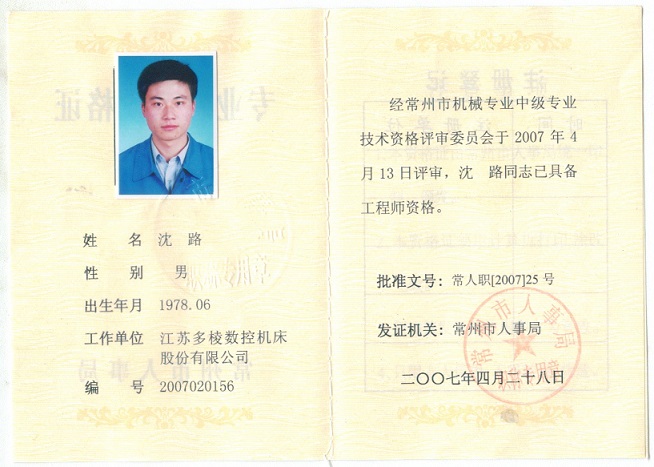 姓 名 沈 路
性 别 男
出生年月 1978.06
工作单位 江苏多棱数控机床
股份有限公司
编 号 2007020156
经常州市机械专业中级专业
技术资格评审委员会于 2007 年 4
月 13 日评审，沈 路同志已具备
工程师资格。
批准文号：常人职[2007]25 号
发证机关：常州市人事局
二〇〇七年四月二十八日
常州市人事局